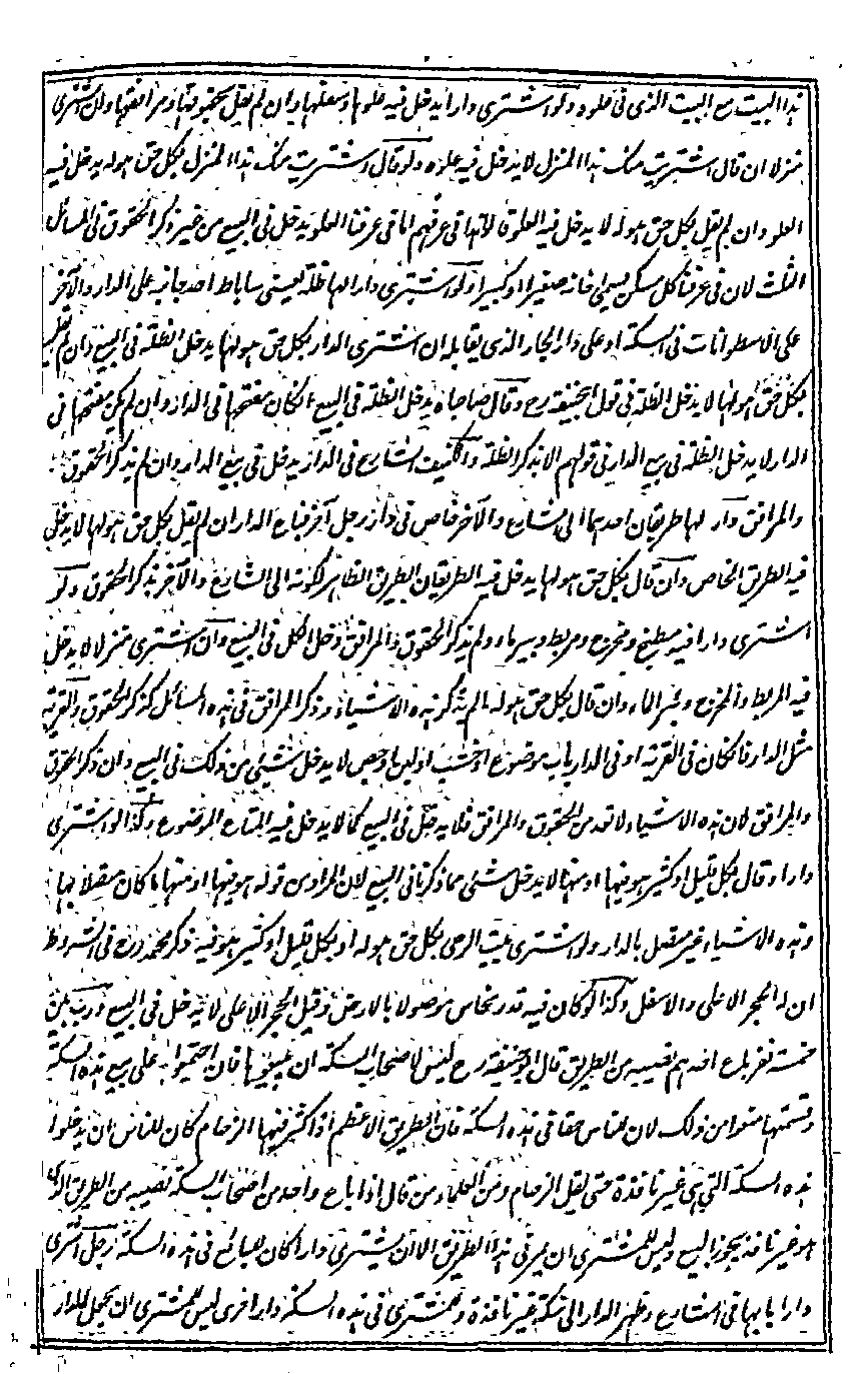 هذا البيت مع البيت الذى فى علوه ولو اشترى دارا يدخل فيه علوها وسفلها وان لم يقل بحقوقها ومرافقها وان اشترى
منزلا ان قال اشتريت منك هذا المنزل لا يدخل فيه علوه ولو قال اشتريت منك هذا المنزل بكل حق هو له يدخل فيه
العلو وان لم يقل بكل حق هو له لا يدخل فيه العلو قالوا هذا فى عرفهم اما فى عرفنا العلو يدخل فى البيع من غير ذكر الحقوق فى المسائل
الثلث لان فى عرفنا كل مسكن يسمى خانه صغيرا او كبيرا ولو اشترى دارا لها ظلة يسمى ساباط احد جانبيه على الدار والآخر
على الاسطوانات فى السكة او على دار الجار الذى يقابله ان اشترى الدار بكل حق هو لها يدخل الظلة فى البيع وان لم يقل
بكل حق هو لها لا يدخل الظلة فى قول ابى حنيفة رح وقال صاحباه يدخل الظلة فى البيع اذا كان مفتحها فى الدار وان لم يكن مفتحها فى
الدار لا يدخل الظلة فى بيع الدار فى قولهم الا بذكر الظلة والكنيف الشارع فى الدار يدخل فى بيع الدار وان لم يذكر الحقوق
والمرافق دار لها طريقان احدهما الى الشارع والآخر خاص فى دار رجل آخر فباع الدار ان لم يقل بكل حق هو لها لا يدخل
فيه الطريق الخاص وان قال بكل حق هو لها يدخل فيه الطريقان الطريق الظاهر لكونه الى الشارع والآخر بذكر الحقوق ولو
اشترى دارا فيه مطبخ ومخرج ومربط وبيرماء ولم يذكر الحقوق والمرافق دخل الكل فى البيع وان اشترى منزلا لا يدخل
فيه المربط والمخرج وبير الماء وان قال بكل حق هو له ما لم يذكر هذه الاشياء وذكر المرافق فى هذه المسائل كذكر الحقوق والقرية
مثل الدار فان كان فى القرية او فى الدار باب موضوع او خشب او لبن او جص لا يدخل شئ من ذلك فى البيع وان ذكر الحقوق
والمرافق لان هذه الاشياء لا تعد من الحقوق والمرافق فلا يدخل فى البيع كما لا يدخل فيه المتاع الموضوع وكذا لو اشترى
دارا وقال بكل قليل او كثير هو فيها او منها لا يدخل شئ مما ذكرنا فى البيع لان المراد من قوله هو فيها او منها ما كان متصلا بها
وهذه الاشياء غير متصل بالدار ولو اشترى بيت الرحى بكل حق هو له او بكل قليل او كثير هو فيه ذكر محمد رح فى الشروط
ان له الحجر الاعلى والاسفل وكذا لو كان فيه قدر نحاس موصولا بالارض وقيل الحجر الاعلى لا يدخل فى البيع درب بين
خمسة نفر باع احدهم نصيبه من الطريق قال ابو حنيفة رح ليس لاصحاب السكة ان يبيعوها فان اجتمعوا على بيع هذه السكة
وقسمتها منعوا من ذلك لان للناس حقا فى هذه السكة فان الطريق الاعظم اذا كثر فيها الزحام كان للناس ان يدخلوا
هذه السكة التى هى غير نافذة حتى يقل الزحام ومن العلماء من قال اذا باع واحد من اصحاب السكة نصيبه من الطريق الذى
هو غير نافذ يجوز البيع وليس للمشترى ان يمر فى هذا الطريق الا ان يشترى دارا كان للبائع فى هذه السكة رجل اشترى
دارا بابها فى الشارع وظهر الدار الى سكة غير نافذة وللمشترى فى هذه السكة دار اخرى ليس للمشترى ان يجعل للدار